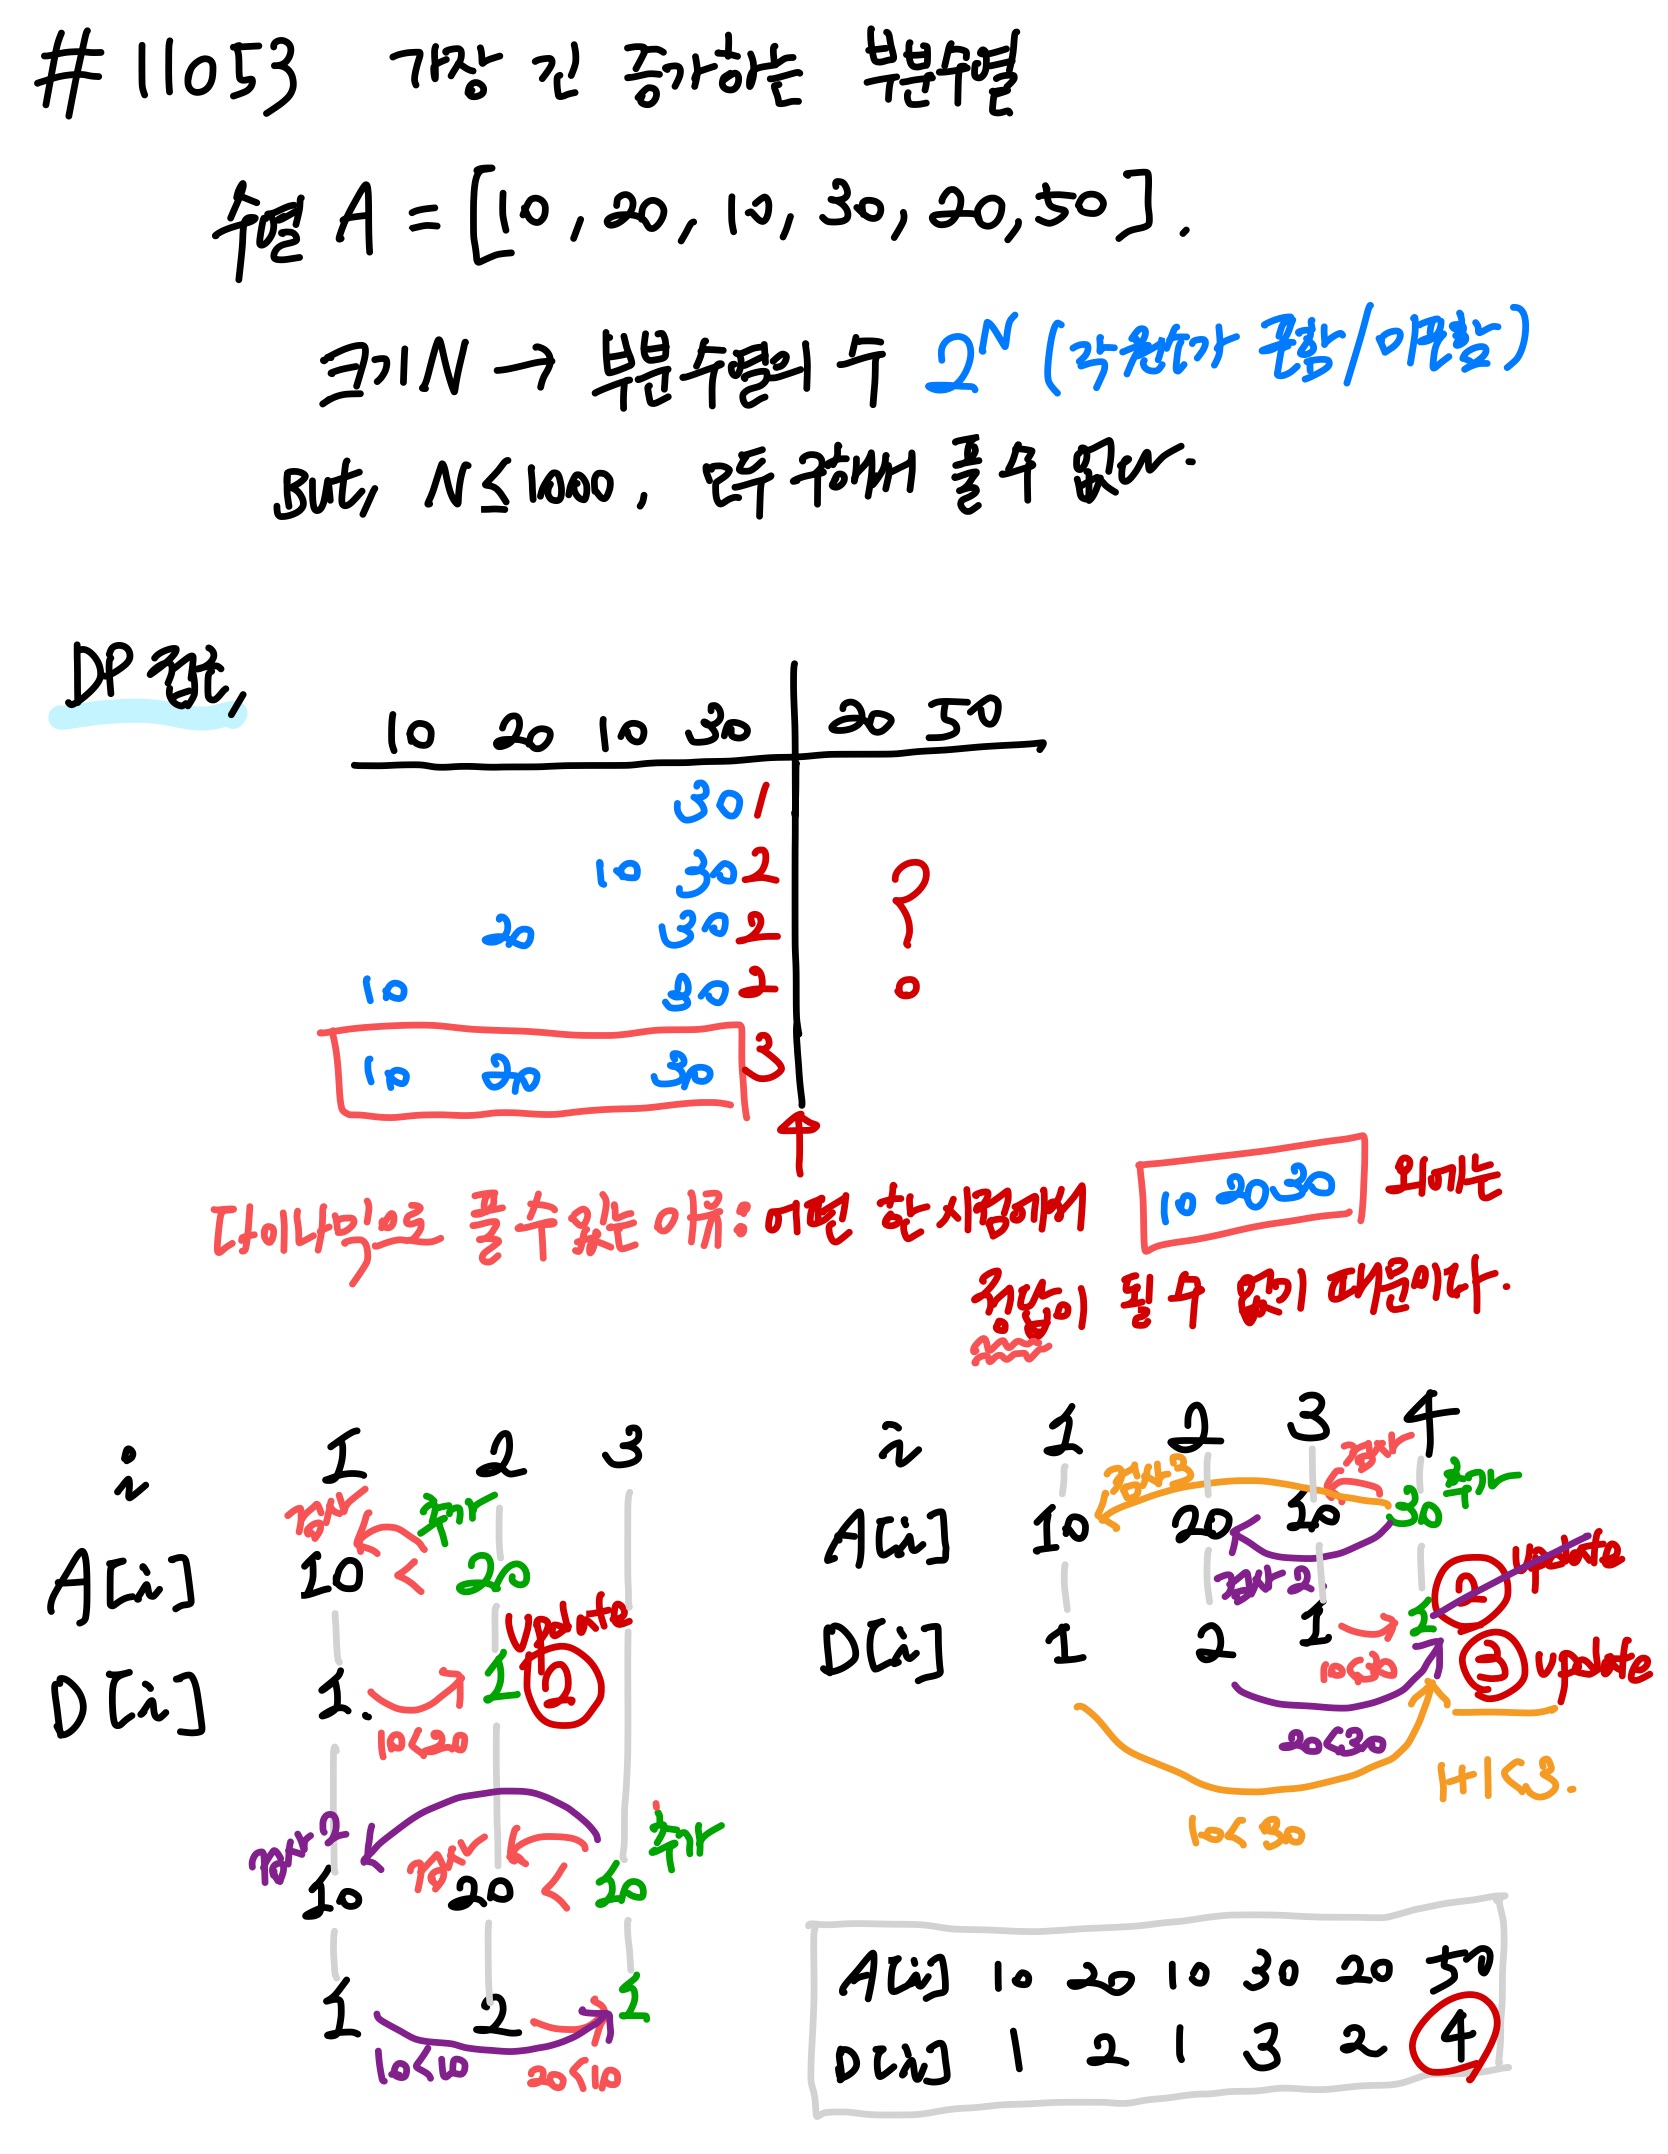 # 11053 가장 긴 증가하는 부분수열
수열 A = [10, 20, 10, 30, 20, 50].
크기 N → 부분수열의 수 2^N (각 원소가 포함/미포함)
But, N ≤ 1000, 모두 구해서 풀 수 없다.
DP 접근,
10 20 10 30 20 50
30 1
10 30 2
20 30 2
?
10 30 2
10 20 30 3
다이나믹으로 풀 수 있는 이유: 어떤 한 시점에서 10 20 30 외에는
정답이 될 수 없기 때문이다.
i 1 2 3
검사 추가
A[i] 10 < 20
update
D[i] 1 1 2
10<20
검사2 검사 추가
10 20 < 10
1 2 1
10<10 20<10
i 1 2 3 4
검사3 검사 추가
A[i] 10 20 10 30
검사2 2 update
D[i] 1 2 1 1 3 update
10<30
20<30
1+1<3.
10<30
A[i] 10 20 10 30 20 50
D[i] 1 2 1 3 2 4